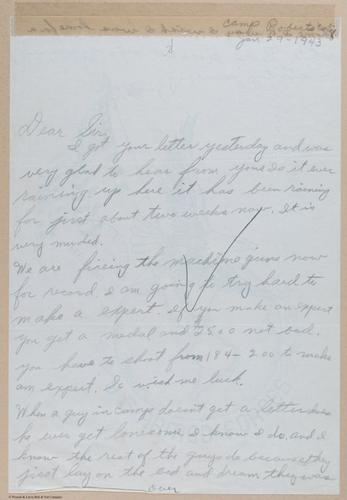 Camp Roberts Calif
Jan 29-1943
Dear Sir,
I got your letter yesterday and was
very glad to hear from you. Is it ever
raining up here it has been raining
for jist about two weeks now. It is
very muded.
We are fireing the machine guns now
for record I am going to try hard to
make a expert. If you make an expert
you get a medal and 25.00 not bad.
you have to shoot from 184-200 to make
an expert. So wish me luck.
When a guy in camp doesnt get a letter does
he ever get lonesome I know I do, and I
know the rest of the guys do because they
jist lay on the bed and dream they was
over